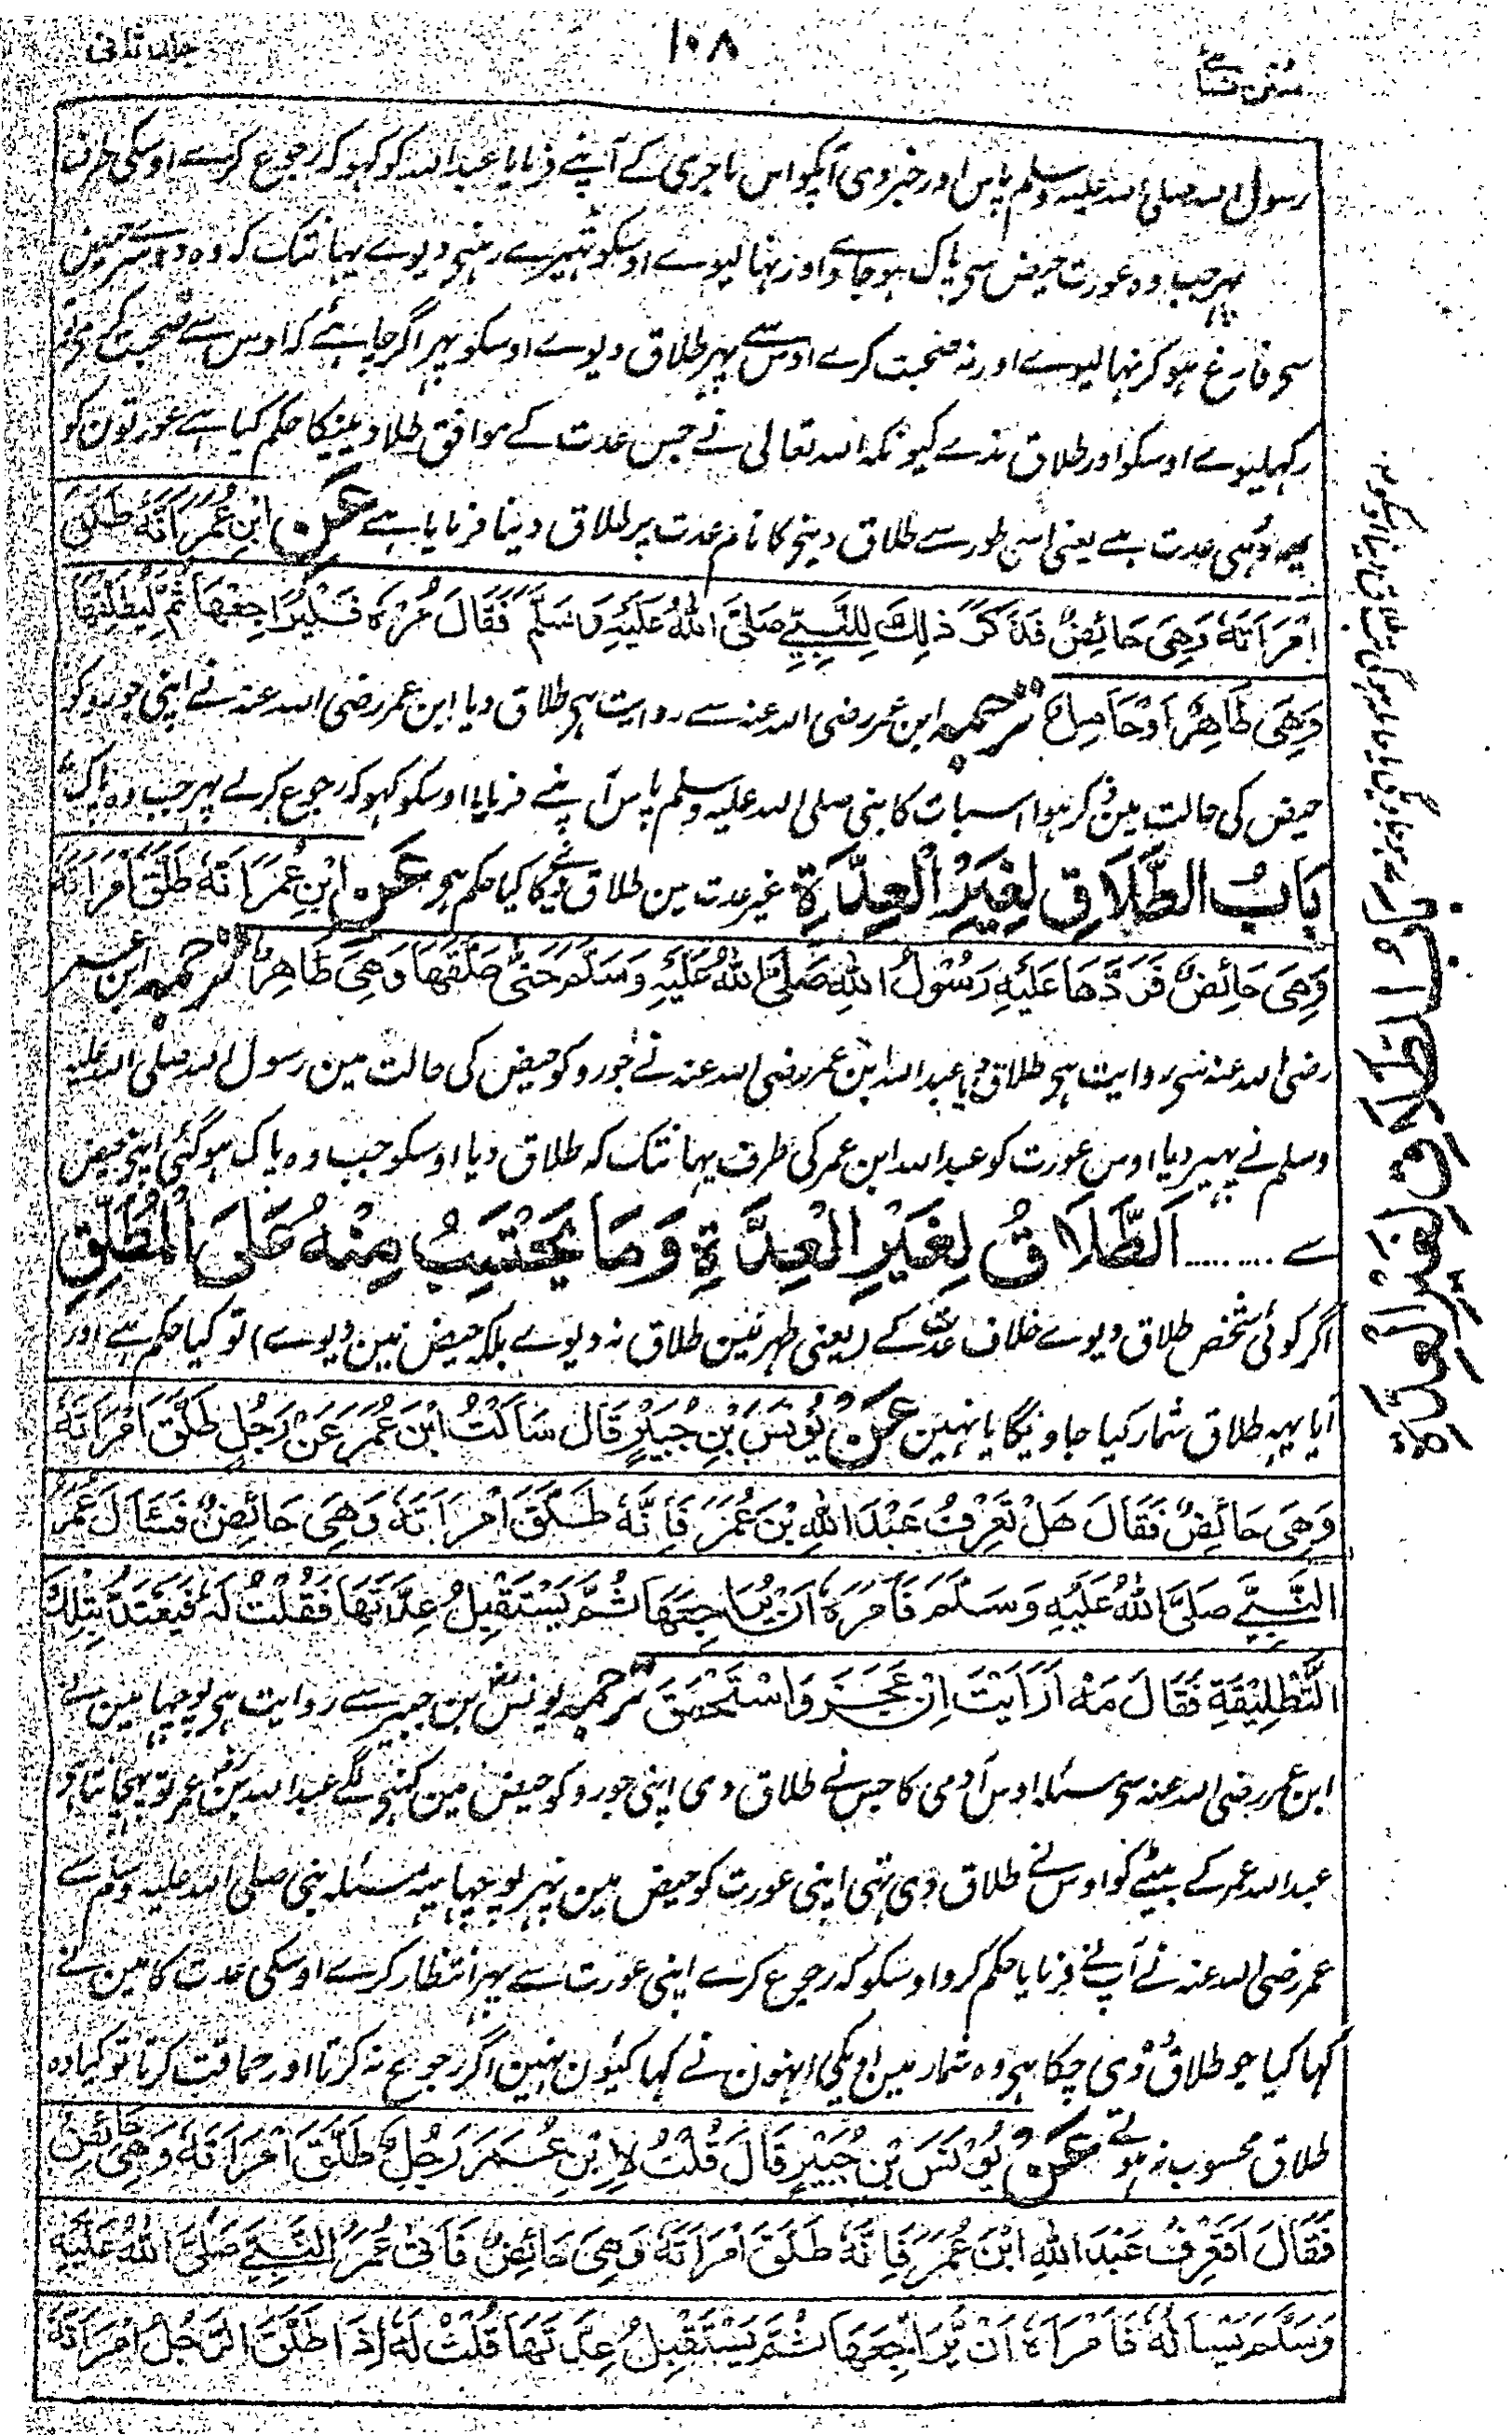 سنن نسائے
۱۰۸
جلد ثانی
رسول اللہ صلی اللہ علیہ وسلم پاس اور خبر دی آپکو اس ماجری کے آپنے فرمایا عبداللہ کو کہو کہ رجوع کرے اوسکی طرف
پہر جب وہ عورت حیض سی پاک ہو جائے اور نہا لیوے اوسکو رہنی دیوے یہانتک کہ وہ دوسرے حیض
سی فارغ ہو کر نہا لیوے اور نہ صحبت کرے اوس سے پہر طلاق دیوے اوسکو پہر اگر چاہے کہ اوس سے صحبت کرے تو
رکہہ لیوے اوسکو اور طلاق ندے کیونکہ اللہ تعالی نے جس عدت کے موافق طلاق دینیکا حکم کیا ہے عورتون کو
یہہ وہی عدت ہے یعنی اس طور سے طلاق دینی کا نام عدت پر طلاق دینا فرمایا ہے عَنِ ابْنِ عُمَرَ اَنَّهٗ طَلَّقَ
اِمْرَاَتَهٗ وَهِيَ حَائِضٌ فَذَكَرَ ذٰلِكَ لِلنَّبِيِّ صَلَّى اللهُ عَلَيْهِ وَسَلَّمَ فَقَالَ مُرْهُ فَلْيُرَاجِعْهَا ثُمَّ لْيُطَلِّقْهَا
وَهِيَ طَاهِرٌ اَوْ حَامِلٌ ترجمہ ابن عمر رضی اللہ عنہ سے روایت ہی طلاق دیا ابن عمر رضی اللہ عنہ نے اپنی جورو کو
حیض کی حالت مین ذکر ہوا اسبات کا نبی صلی اللہ علیہ وسلم پاس آپنے فرمایا اوسکو کہو کہ رجوع کرلے پہر جب وہ پاک
ہو جاویگی یا حاملہ ہوگی تب طلاق دینا اوسکو
بَابُ الطَّلَاقِ لِغَيْرِ الْعِدَّةِ غیر عدت مین طلاق دینیکا کیا حکم ہی عَنِ ابْنِ عُمَرَ اَنَّهٗ طَلَّقَ امْرَاَتَهٗ
وَهِيَ حَائِضٌ فَرَدَّهَا عَلَيْهِ رَسُوْلُ اللهِ صَلَّى اللهُ عَلَيْهِ وَسَلَّمَ حَتّٰى طَلَّقَهَا وَهِيَ طَاهِرٌ ترجمہ ابن عمر
رضی اللہ عنہ سی روایت ہی طلاق دیا عبداللہ ابن عمر رضی اللہ عنہ نے جورو کو حیض کی حالت مین رسول اللہ صلی اللہ علیہ
وسلم نے پہیر دیا اوس عورت کو عبداللہ ابن عمر کی طرف یہانتک کہ طلاق دیا اوسکو جب وہ پاک ہوگئی اپنی حیض
سے ........ اَلطَّلَاقُ لِغَيْرِ الْعِدَّةِ وَمَا يُحْتَسَبُ مِنْهُ عَلَى الْمُطَلِّقِ
اگر کوئی شخص طلاق دیوے خلاف عدت کے (یعنی طہر مین طلاق نہ دیوے بلکہ حیض مین دیوے) تو کیا حکم ہے اور
آیا یہہ طلاق شمار کیا جاویگا یا نہین عَنْ يُوْنُسَ بْنِ جُبَيْرٍ قَالَ سَاَلْتُ ابْنَ عُمَرَ عَنْ رَجُلٍ طَلَّقَ امْرَاَتَهٗ
وَهِيَ حَائِضٌ فَقَالَ هَلْ تَعْرِفُ عَبْدَ اللهِ بْنَ عُمَرَ فَاِنَّهٗ طَلَّقَ امْرَاَتَهٗ وَهِيَ حَائِضٌ فَسَاَلَ عُمَرُ
النَّبِيَّ صَلَّى اللهُ عَلَيْهِ وَسَلَّمَ فَاَمَرَهٗ اَنْ يُّرَاجِعَهَا ثُمَّ يَسْتَقْبِلُ عِدَّتَهَا فَقُلْتُ لَهٗ فَيَعْتَدُّ بِتِلْكَ
التَّطْلِيْقَةِ فَقَالَ مَهْ اَرَاَيْتَ اِنْ عَجَزَ وَاسْتَحْمَقَ ترجمہ یونس بن جبیر سے روایت ہی پوچہا مین نے
ابن عمر رضی اللہ عنہ سی مسئلہ اوس آدمی کا جس نے طلاق دی اپنی جورو کو حیض مین کہنی لگے عبداللہ بن عمر تو پہچانتا ہو
عبداللہ عمر کے بیٹے کو اوس نے طلاق دی تہی اپنی عورت کو حیض مین پہر پوچہا یہہ مسئلہ نبی صلی اللہ علیہ وسلم سے
عمر رضی اللہ عنہ نے آپنے فرمایا حکم کرو اوسکو کہ رجوع کرے اپنی عورت سے پہر انتظار کرے اوسکی عدت کا مین نے
کہا کیا جو طلاق دی چکا ہی وہ شمار مین آویگی انہون نے کہا کیون نہین اگر رجوع نہ کرتا اور حماقت کرتا تو کیا وہ
طلاق محسوب نہ ہوتے عَنْ يُوْنُسَ بْنِ جُبَيْرٍ قَالَ قُلْتُ لِابْنِ عُمَرَ رَجُلٌ طَلَّقَ امْرَاَتَهٗ وَهِيَ حَائِضٌ
فَقَالَ اَتَعْرِفُ عَبْدَ اللهِ ابْنَ عُمَرَ فَاِنَّهٗ طَلَّقَ امْرَاَتَهٗ وَهِيَ حَائِضٌ فَاَتٰى عُمَرُ النَّبِيَّ صَلَّى اللهُ عَلَيْهِ
وَسَلَّمَ يَسْاَلُهٗ فَاَمَرَهٗ اَنْ يُّرَاجِعَهَا ثُمَّ يَسْتَقْبِلُ عِدَّتَهَا قُلْتُ لَهٗ اِذَا طَلَّقَ الرَّجُلُ امْرَاَتَهٗ
باب الطَّلَاقِ لِغَيْرِ الْعِدَّةِ